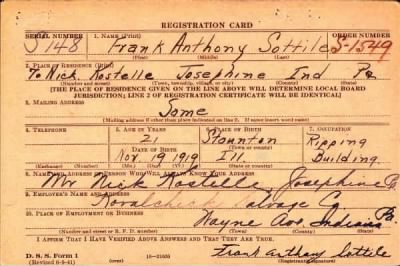 REGISTRATION CARD
SERIAL NUMBER 1. NAME (Print) ORDER NUMBER
S 148 Frank Anthony Sottile S-1549
(First) (Middle) (Last)
2. PLACE OF RESIDENCE (Print)
To Nick Rostelle Josephine Ind Pa
(Number and street) (Town, township, village, or city) (County) (State)
[THE PLACE OF RESIDENCE GIVEN ON THE LINE ABOVE WILL DETERMINE LOCAL BOARD
JURISDICTION; LINE 2 OF REGISTRATION CERTIFICATE WILL BE IDENTICAL]
3. MAILING ADDRESS
Same
[Mailing address if other than place indicated on line 2. If same insert word same]
4. TELEPHONE 5. AGE IN YEARS 6. PLACE OF BIRTH 7. OCCUPATION
21 Staunton Ripping
DATE OF BIRTH
Nov 19 1919 Ill. Building
(Exchange) (Number) (Mo.) (Day) (Yr.) (State or country)
8. NAME AND ADDRESS OF PERSON WHO WILL ALWAYS KNOW YOUR ADDRESS
Mr Nick Rostelle, Josephine Pa
9. EMPLOYER'S NAME AND ADDRESS
Kovalchick Salvage Co
10. PLACE OF EMPLOYMENT OR BUSINESS
Wayne Ave Indiana Pa.
(Number and street or R. F. D. number) (Town) (County) (State)
I AFFIRM THAT I HAVE VERIFIED ABOVE ANSWERS AND THAT THEY ARE TRUE.
D. S. S. Form 1
(Revised 6-9-41) 16—21630 Frank Anthony Sottile